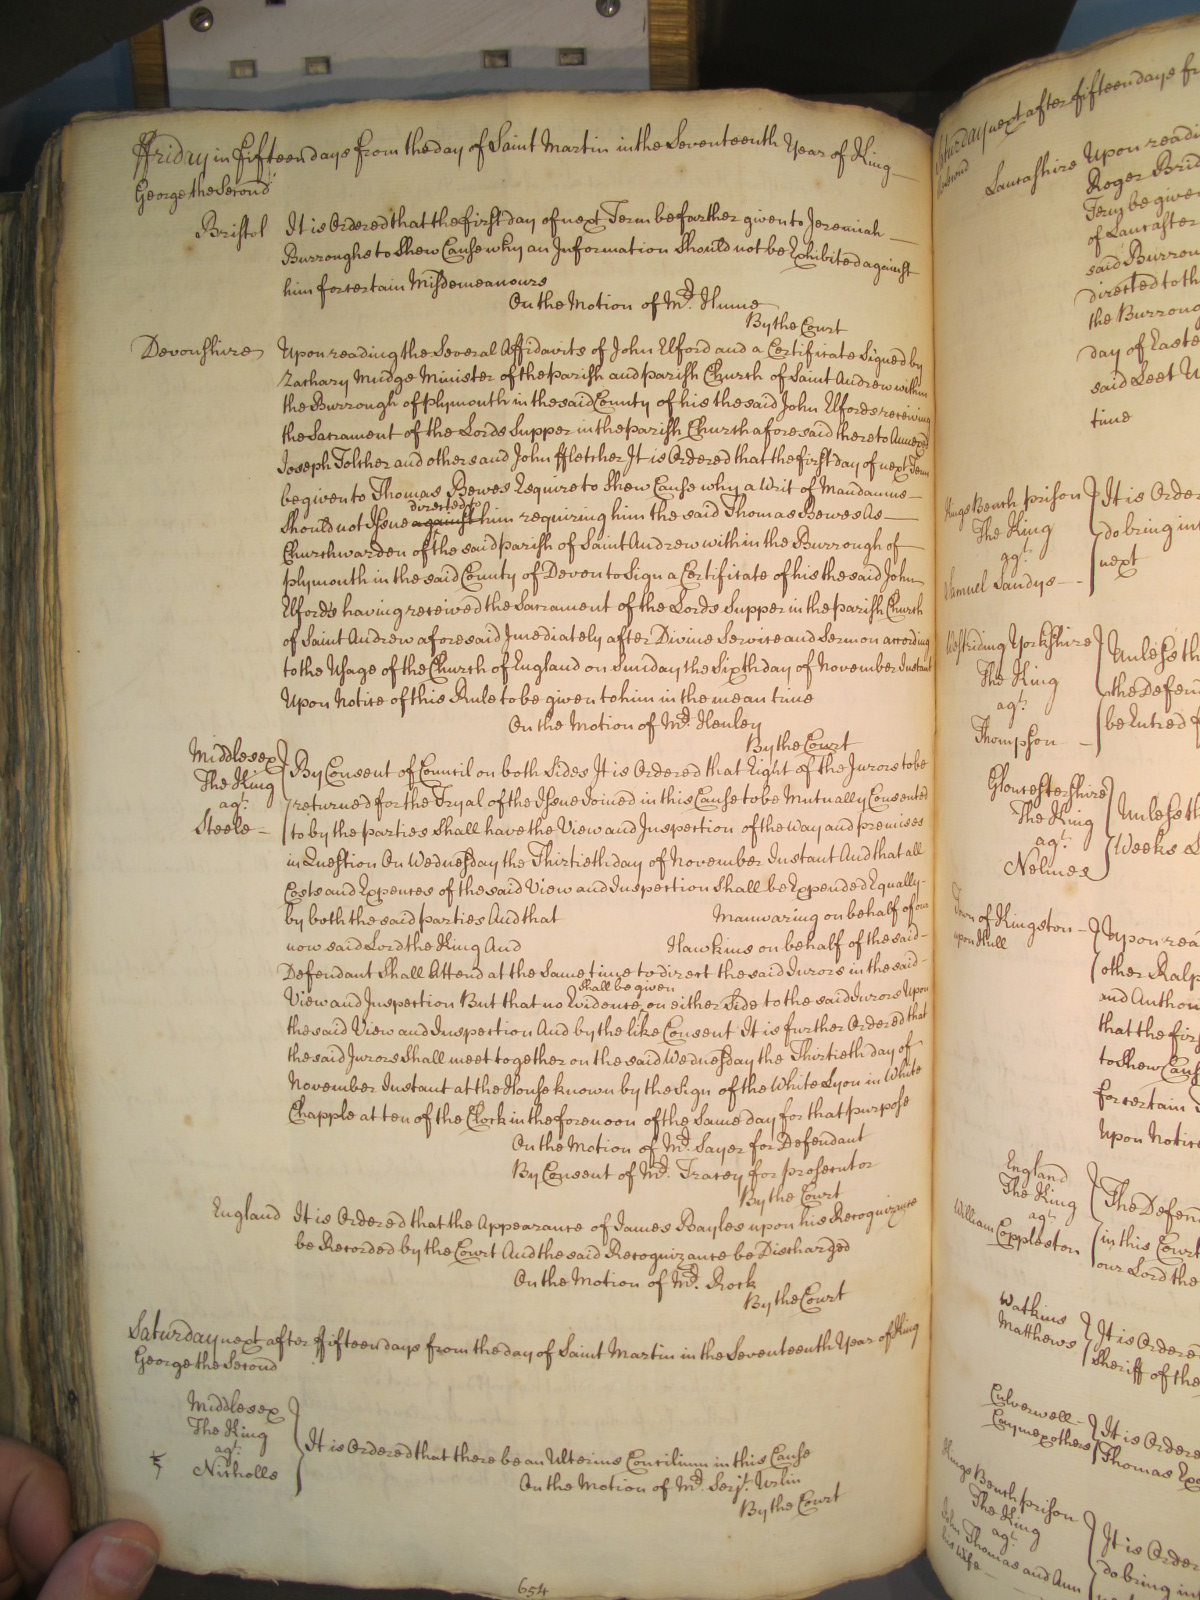 Ffriday in Fifteen days from the day of Saint Martin in the Seventeenth Year of King
George the Second
Bristol It is Ordered that the first day of next Term be farther given to Jeremiah
Burroughs to Shew Cause why an Information Should not be Exhibited against
him for certain Misdemeanours
On the Motion of Mr. Hume
By the Court
Devonshire Upon reading the Several Affidavits of John Elford and a Certificate Signed by
Zachary Mudge Minister of the parish and parish Church of Saint Andrew within
the Burrough of plymouth in the said County of his the said John Elfords receiving
the Sacrament of the Lords Supper in the parish Church aforesaid thereto Annexed
Joseph Tolcher and others and John ffletcher It is Ordered that the first day of next Term
be given to Thomas Bewes Esquire to Shew Cause why a Writ of Mandamus
directed to
Should not Issue against him requiring him the said Thomas Bewes As
Churchwarden of the said parish of Saint Andrew within the Burrough of
plymouth in the said County of Devon to Sign a Certificate of his the said John
Elford's having received the Sacrament of the Lords Supper in the parish Church
of Saint Andrew aforesaid Imediately after Divine Service and Sermon according
to the Usage of the Church of England on Sunday the Sixth day of November Instant
Upon Notice of this Rule to be given to him in the mean time
On the Motion of Mr. Henley
By the Court
Middlesex
The King
agt.
Steele
By Consent of Council on both Sides It is Ordered that Eight of the Jurors to be
returned for the Tryal of the Issue Joined in this Cause to be Mutually Consented
to by the parties Shall have the View and Inspection of the way and premises
in Question On Wednesday the Thirtieth day of November Instant And that all
Costs and Expences of the said View and Inspection Shall be Expended Equally
by both the said parties And that Manwaring on behalf of our
now said Lord the King And Hawkins on behalf of the said
Defendant Shall Attend at the Same time to direct the said Jurors in the said
shall be given
View and Inspection But that no Evidence on either Side to the said Jurors Upon
the said View and Inspection And by the like Consent It is further Ordered that
the said Jurors Shall meet together on the said Wednesday the Thirtieth day of
November Instant at the House known by the Sign of the White Lyon in White
Chapple at ten of the Clock in the forenoon of the Same day for that purpose
On the Motion of Mr. Sayer for Defendant
By Consent of Mr. Tracey for prosecutor
By the Court
England It is Ordered that the Appearance of James Bayles upon his Recognizance
be Recorded by the Court And the said Recognizance be Discharged
On the Motion of Mr. Rock
By the Court
Saturday next after fifteen days from the day of Saint Martin in the Seventeenth Year of King
George the Second
Middlesex
The King
agt.
Nicholls
It is Ordered that there be an Ulterius Concilium in this Cause
On the Motion of Mr. Serjt. Urlin
By the Court
654
Saturday next after fifteen days
Lancashire Upon
Roger
Term be give
of Lancaster
said Burrou
directed to th
the Burroug
day of Easte
said Leet
time
Kings Bench prison
The King
agt.
Samuel Sandys
It is Order
do bring in
next
Westriding Yorkshire
The King
agt.
Thompson
Unless th
the Defen
be Entred
Gloucestershire
The King
agt.
Nelmes
Unless th
Weeks
Town of Kingston
upon Hull
Upon rea
other Ralp
and Author
that the fir
to Shew Caus
for certain
Upon Notic
England
The King
agt.
William Coppleston
The Defen
in this Court
our Lord the
Watkins
Matthews
It is Ordere
Sheriff of the
Culverwell
It is Ordere
Thomas
Kings Bench prison
The King
agt.
John Thomas and Ann
his Wife
It is Order
do bring in